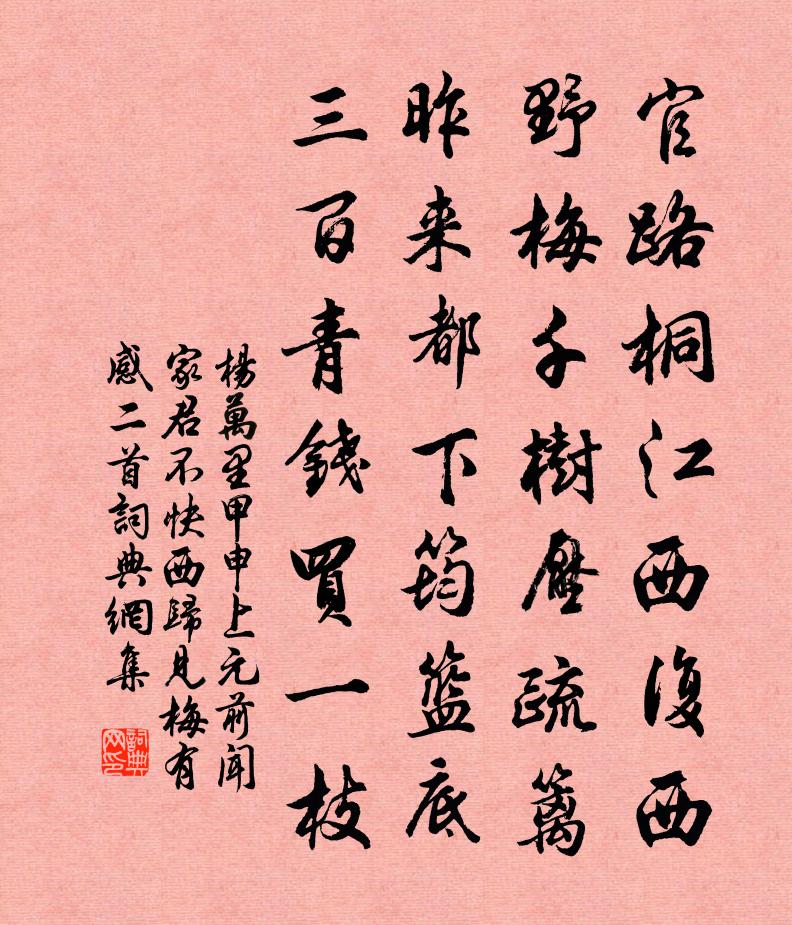 官路桐江西復西
野梅千樹壓疏籬
昨来都下筠籃底
三百青錢買一枝
楊萬里甲申上元前聞
家君不快西歸見梅有
感二首詞典網集
詞典网印